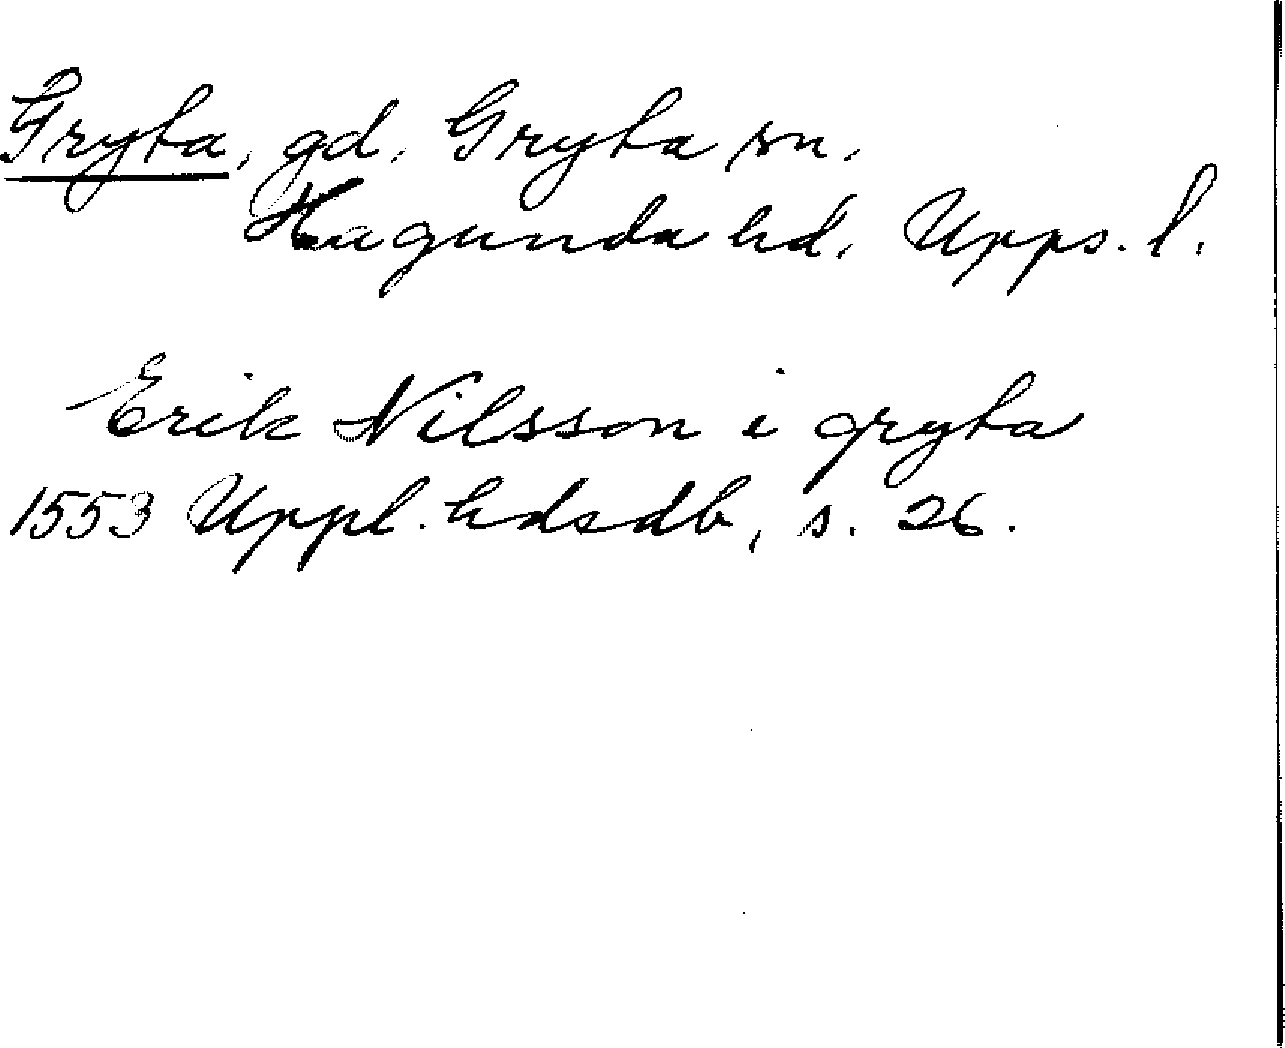 Gryta, gd, Gryta sn,
Hagunda hd. Upps. l.
Erik Nilsson i gryta
1553 Uppl. hdsdb, s. 26.